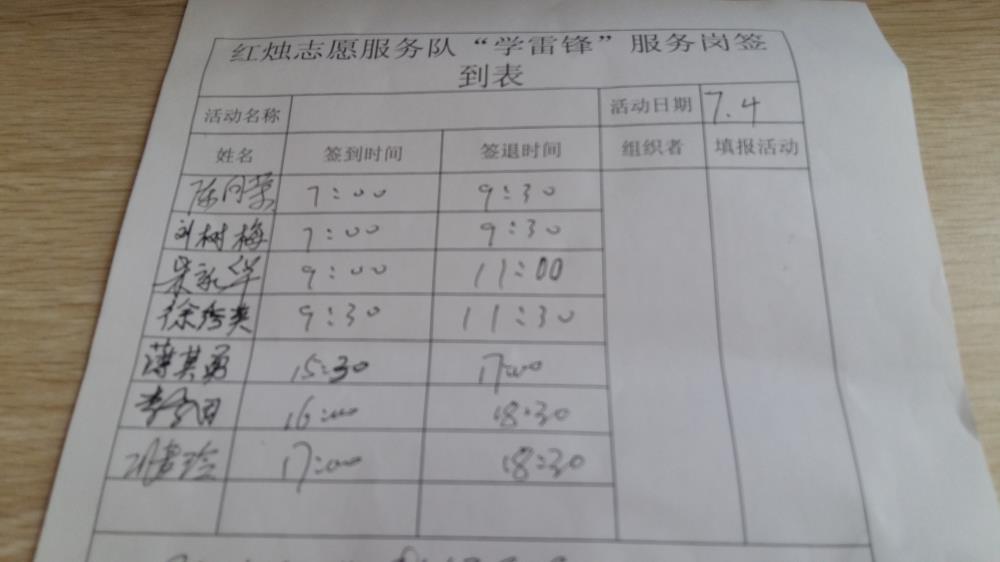 红烛志愿服务队“学雷锋”服务岗签
到表
活动名称 活动日期 7.4
姓名 签到时间 签退时间 组织者 填报活动
7:00 9:30
刘树梅 7:00 9:30
9:00 11:00
徐秀英 9:30 11:30
15:30 17:00
16:00 18:30
17:00 18:30